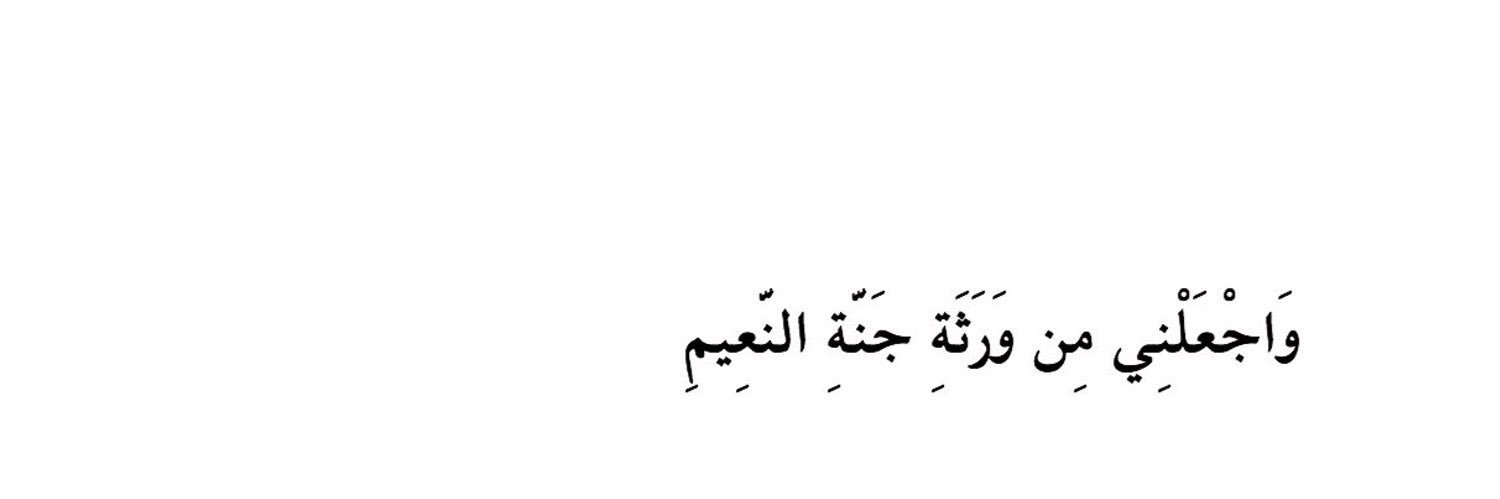 وَاجْعَلْنِي مِن وَرَثَةِ جَنّةِ النّعِيمِ